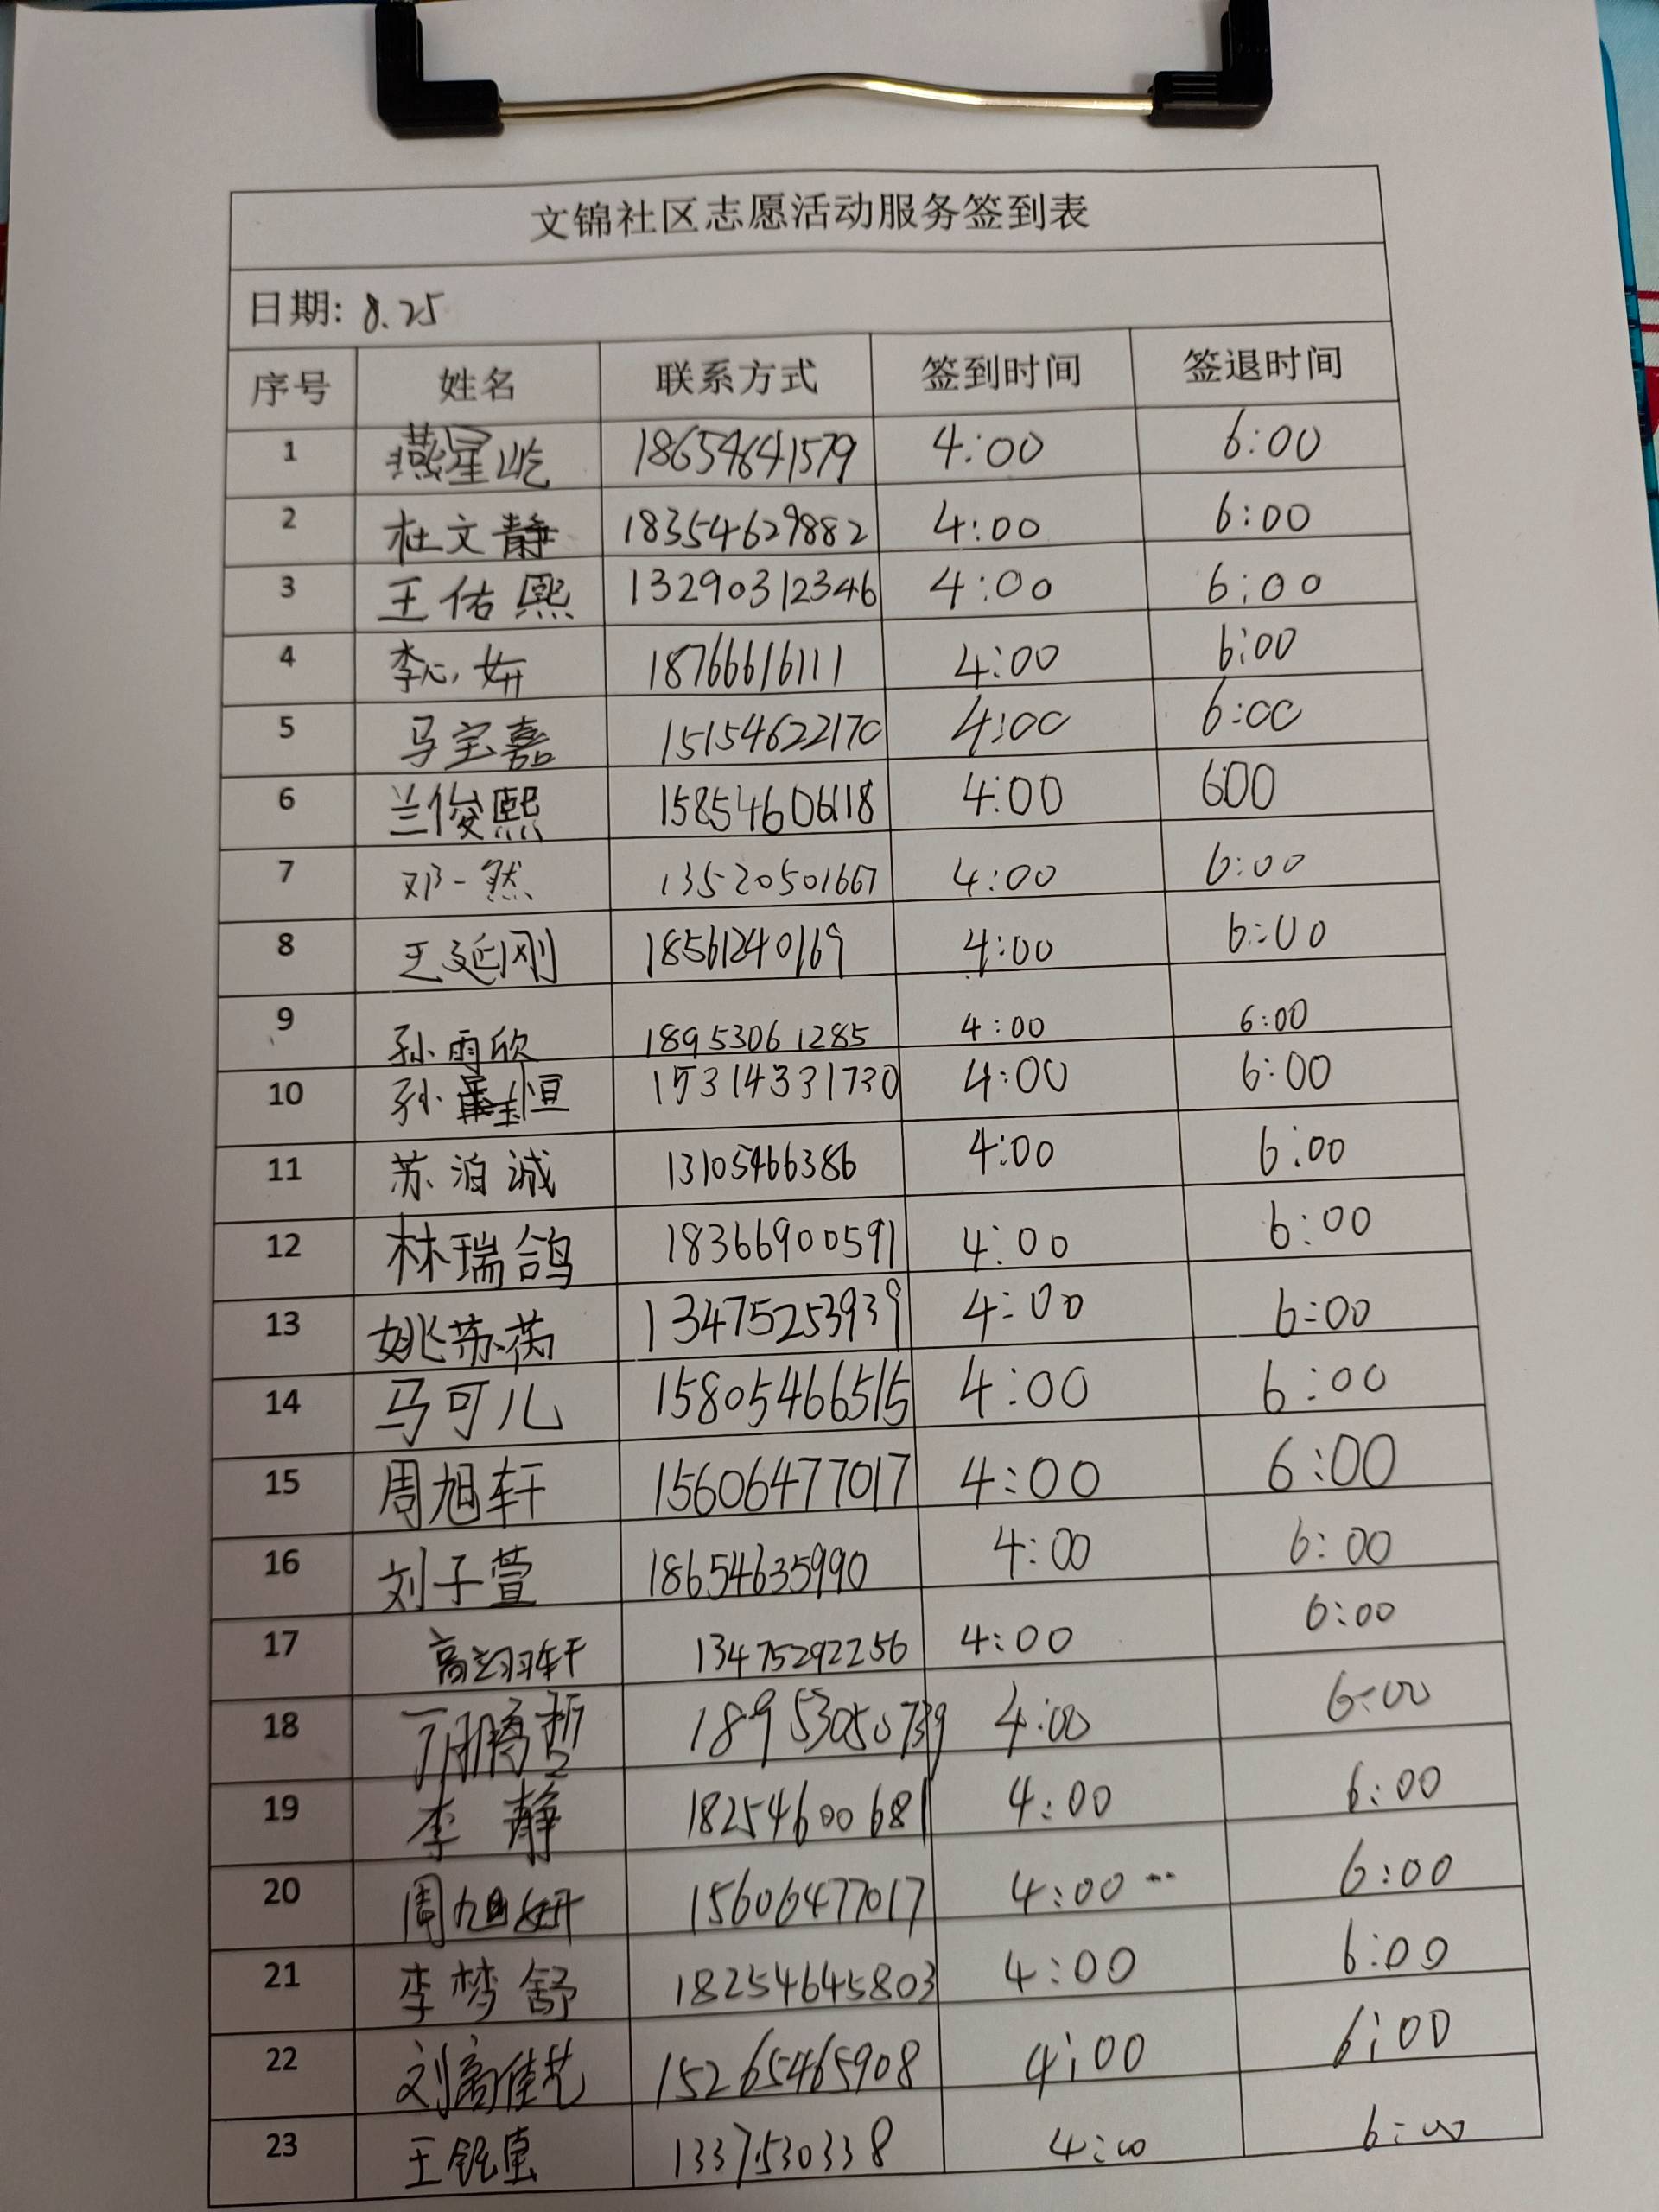 文锦社区志愿活动服务签到表
日期: 8.25
序号 姓名 联系方式 签到时间 签退时间
1 燕星屹 18654641579 4:00 6:00
2 杜文静 18354629882 4:00 6:00
3 王佑熙 13290312346 4:00 6:00
4 李心妍 18766616111 4:00 6:00
5 马宝嘉 15154622170 4:00 6:00
6 兰俊熙 15854606118 4:00 600
7 邓一然 13520501667 4:00 6:00
8 王延刚 18561240169 4:00 6:00
9 孙雨欣 18953061285 4:00 6:00
10 孙 恒 15314331730 4:00 6:00
11 苏泊诚 13105466386 4:00 6:00
12 林瑞鸽 18366900591 4:00 6:00
13 姚苏芮 13475253939 4:00 6:00
14 马可儿 15805466515 4:00 6:00
15 周旭轩 15606477017 4:00 6:00
16 刘子萱 18654635990 4:00 6:00
17 高翊轩 13475292256 4:00 6:00
18 18953050739 4:00 6:00
19 李静 18254600681 4:00 6:00
20 周旭妍 15606477017 4:00 6:00
21 李梦舒 18254645803 4:00 6:00
22 刘高佳艺 15265465908 4:00 6:00
23 王 1337530338 4:00 6:00